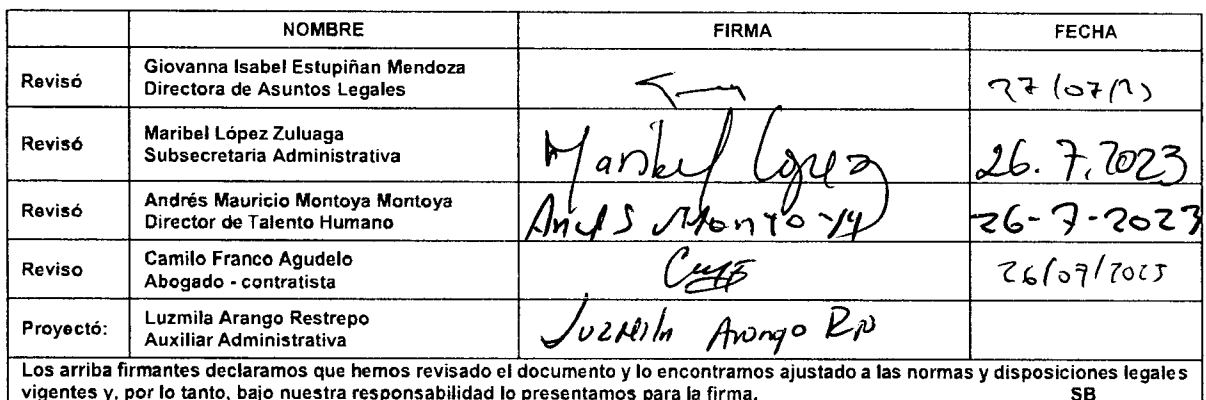 NOMBRE FIRMA FECHA
Revisó Giovanna Isabel Estupiñan Mendoza
Directora de Asuntos Legales 27/07/23
Revisó Maribel López Zuluaga
Subsecretaria Administrativa Maribel López 26.7.2023
Revisó Andrés Mauricio Montoya Montoya
Director de Talento Humano Andrés Montoya M 26-7-2023
Reviso Camilo Franco Agudelo
Abogado - contratista 26/07/2023
Proyectó: Luzmila Arango Restrepo
Auxiliar Administrativa Luzmila Arango Rp
Los arriba firmantes declaramos que hemos revisado el documento y lo encontramos ajustado a las normas y disposiciones legales
vigentes y, por lo tanto, bajo nuestra responsabilidad lo presentamos para la firma. SB